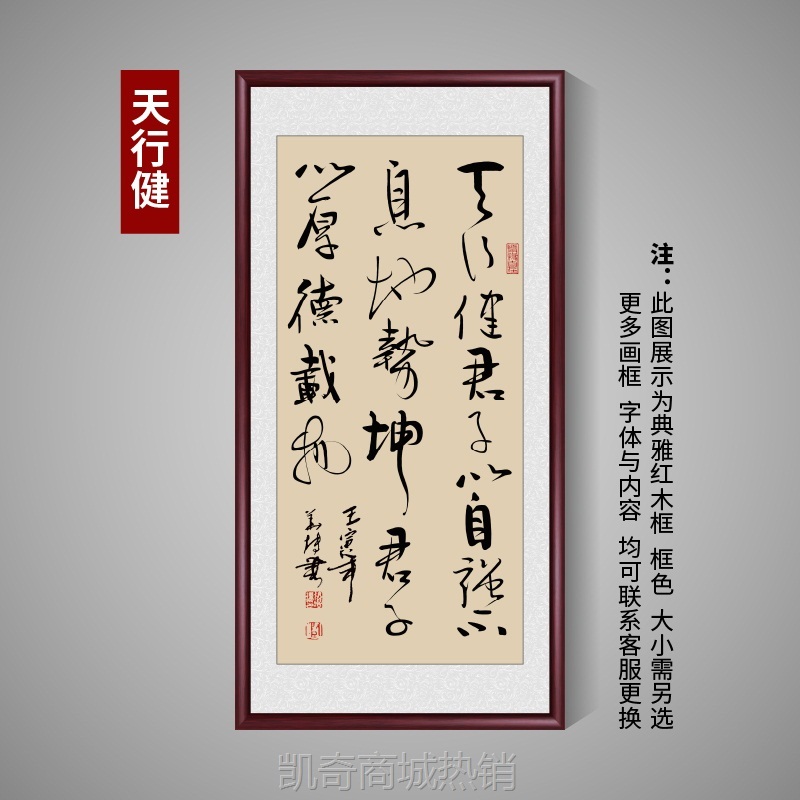 天行健
天行健君子以自强不
息地势坤君子
以厚德载物
壬寅年
注：此图展示为典雅红木框 框色 大小需另选
更多画框 字体与内容 均可联系客服更换
凯奇商城热销